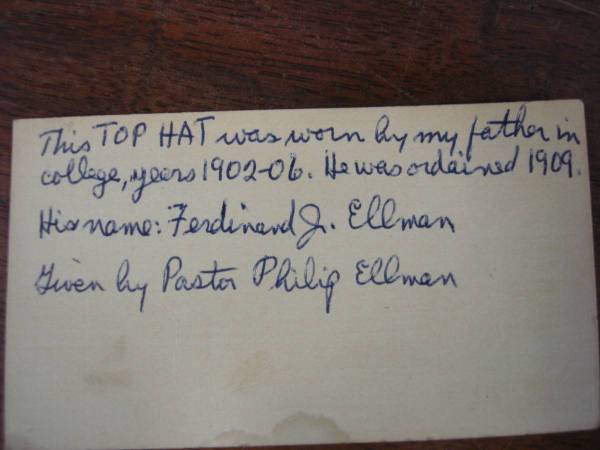 This TOP HAT was worn by my father in
college, years 1902-06. He was ordained 1909.
His name: Ferdinand J. Ellman
Given by Pastor Philip Ellman